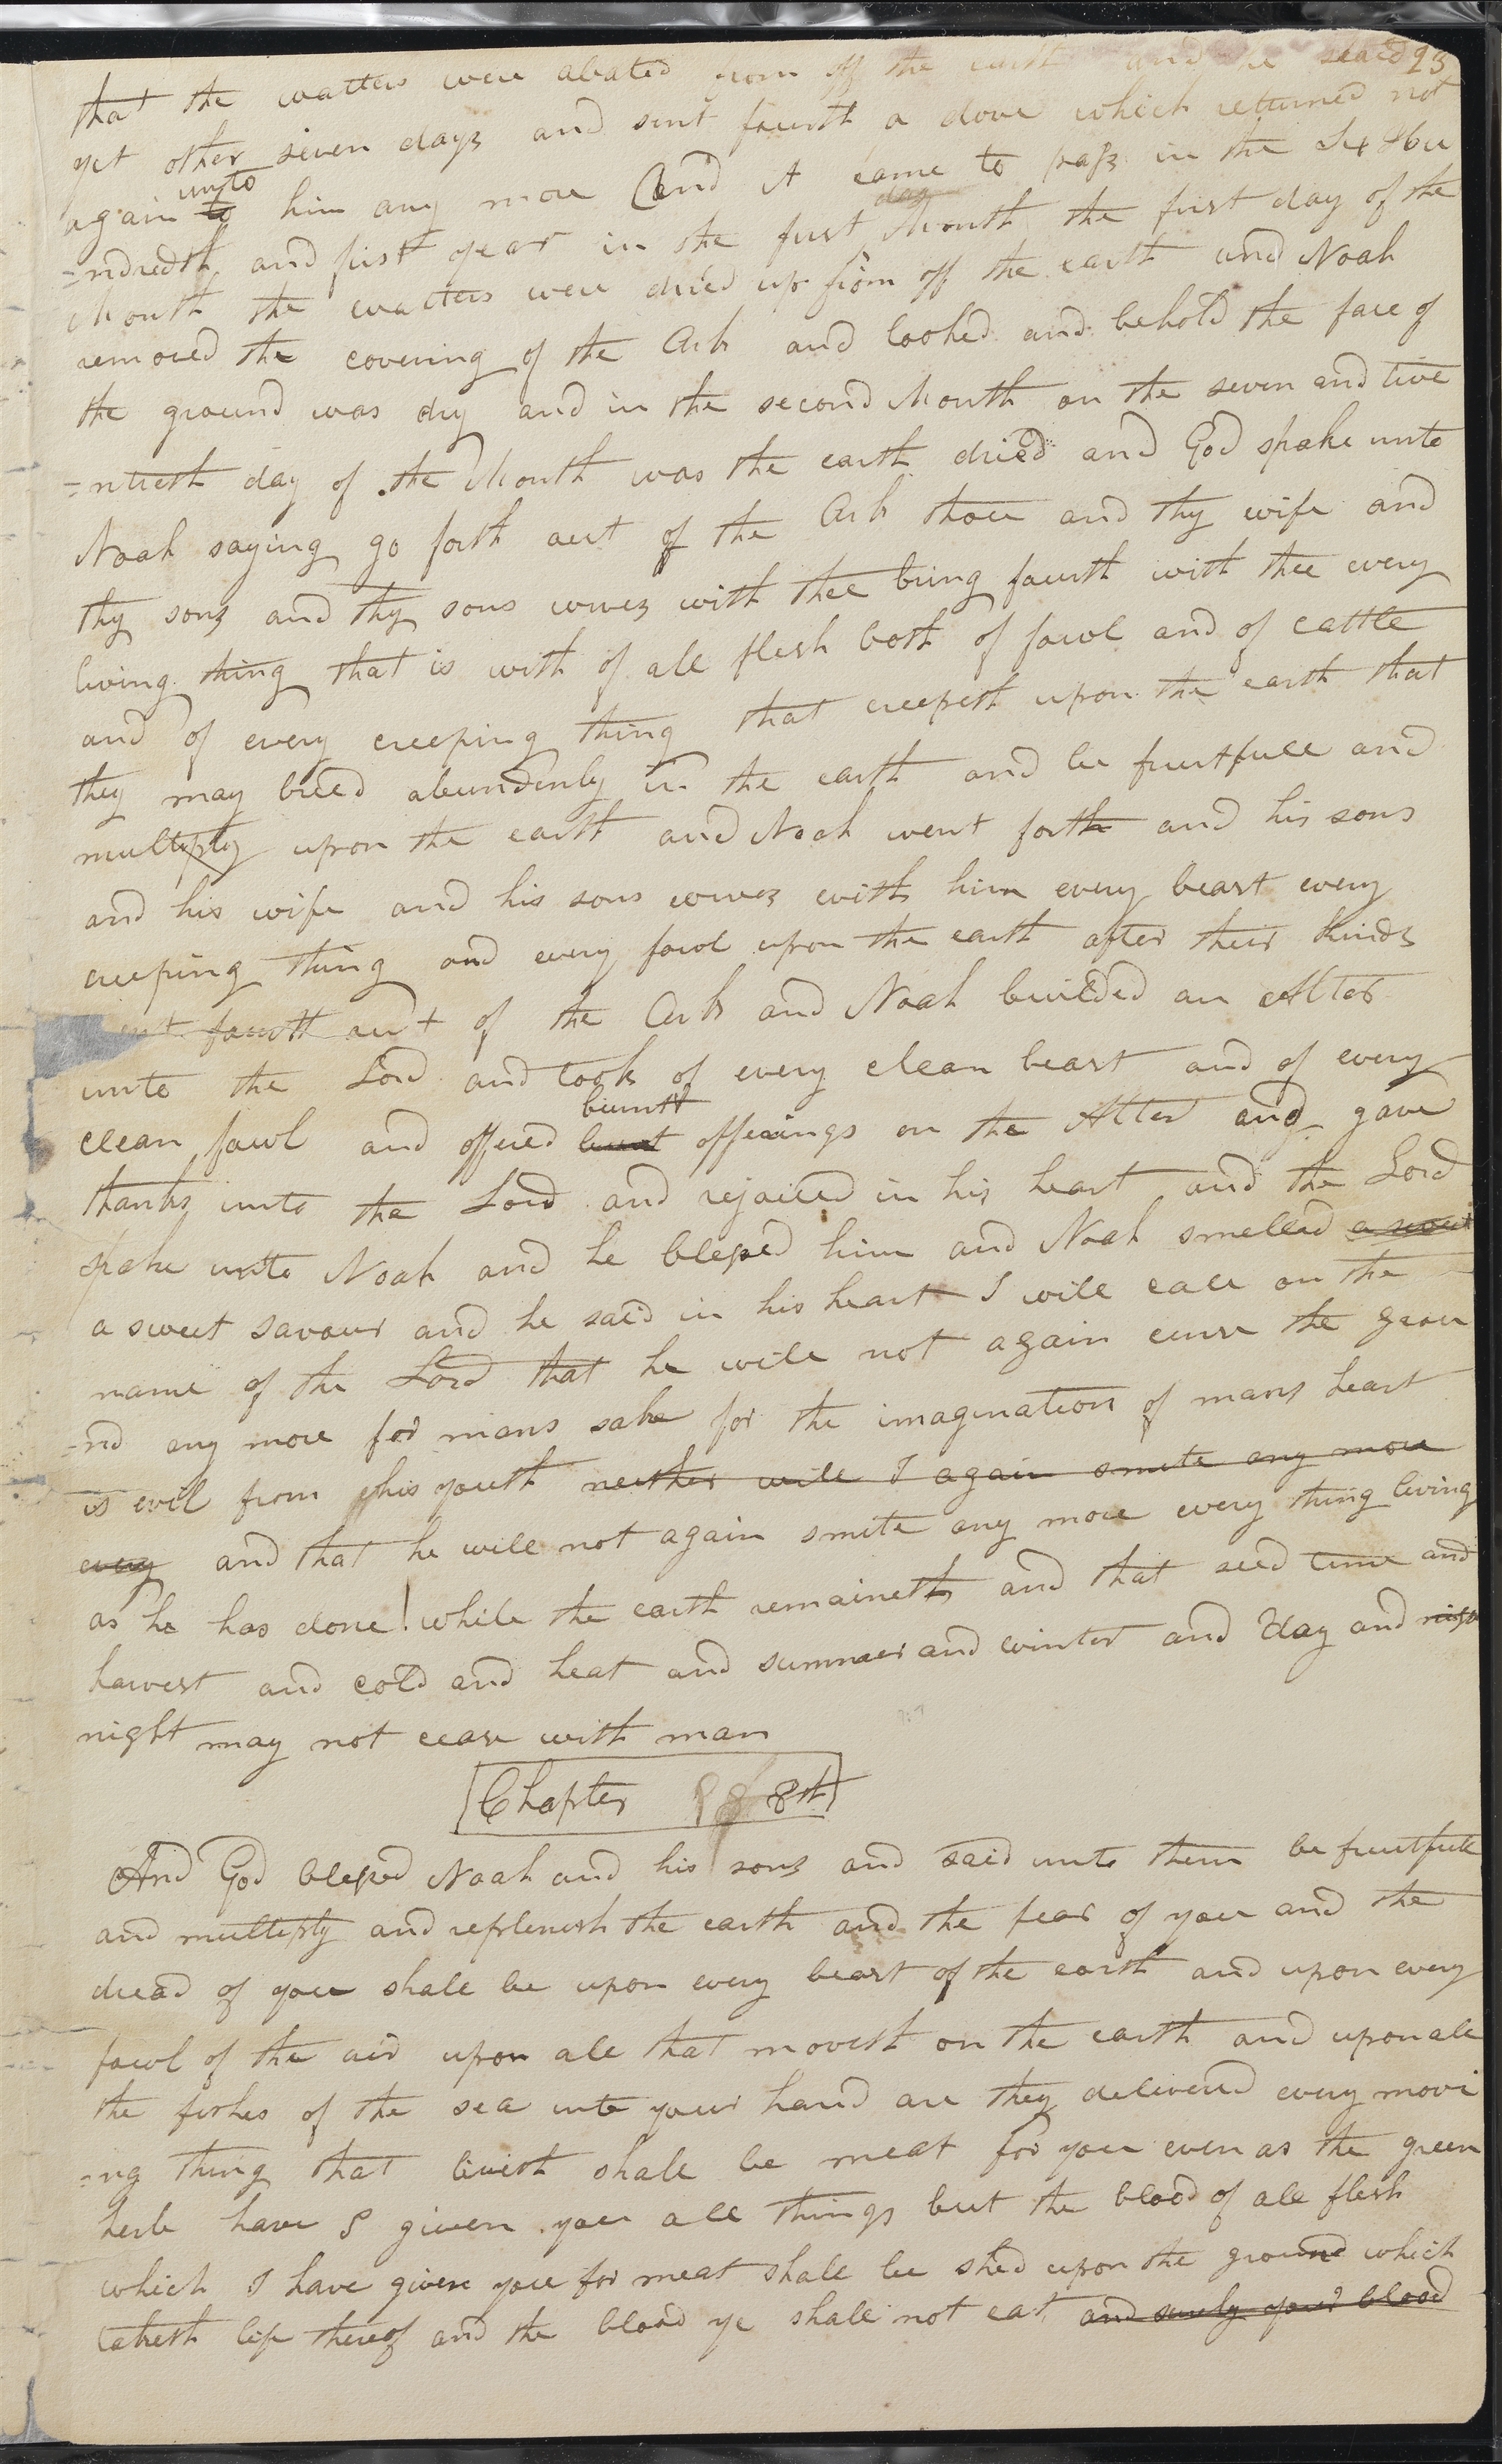 that the watters were abated from off the earth and he staid 23
yet other seven days and sent fourth a dove which returned not
again to unto him any more And it came to pass in the Six Hu
=ndredth and first year in the first day Month the first day of the
Month the watters were dried up from off the earth and Noah
removed the covering of the Ark and looked and behold the face of
the ground was dry and in the second Month on the seven and twe
=ntieth day of the Month was the earth dried and God spake unto
Noah saying go forth out of the Ark thou and thy wife and
thy sons and thy sons wives with thee bring fourth with thee every
living thing that is with of all flesh both of fowl and of cattle
and of every creeping thing that creepeth upon the earth that
they may breed abundenly in the earth and be fruitfull and
multeply upon the earth and Noah went forth and his sons
and his wife and his sons wives with him every beast every
creeping thing and every fowl upon the earth after their kinds
ent fourth out of the Ark and Noah builded an Alter
unto the Lord and took of every clean beast and of every
clean fowl and offered burnt burntt offerings on the Alter and gave
thanks unto the Lord and rejoiced in his heart and the Lord
spake unto Noah and he blessed him and Noah smelled a sweet
a sweet savour and he said in his heart I will call on the
name of the Lord that he will not again curse the grou
=nd any more for mans sake for the imagination of mans heart
is evil from his youth neither will I again smite any more
every and that he will not again smite any more every thing living
as he has done! while the earth remaineth and that seed time and
harvest and cold and heat and summer and winter and day and nigh
night may not cease with man
Chapter 8th
And God blessed Noah and his sons and said unto them be fruitfull
and multeply and replenish the earth and the fear of you and the
dread of you shall be upon every beast of the earth and upon every
fowl of the air upon all that moveth on the earth and upon all
the fishes of the sea unto your hand are they delivered every movi
=ng thing that liveth shall be meat for you even as the green
herb have I given you all things but the blood of all flesh
which I have given you for meat shall be shed upon the ground which
taketh life thereof and the blood ye shall not eat and surely your blood